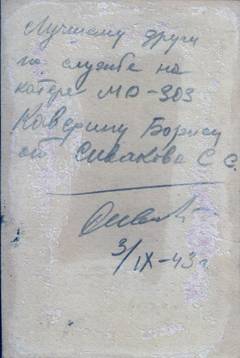 Лучшему другу
по службе на
катере МО-303
Каверину Борису
от Сивакова С С.
3/IX-43 г.